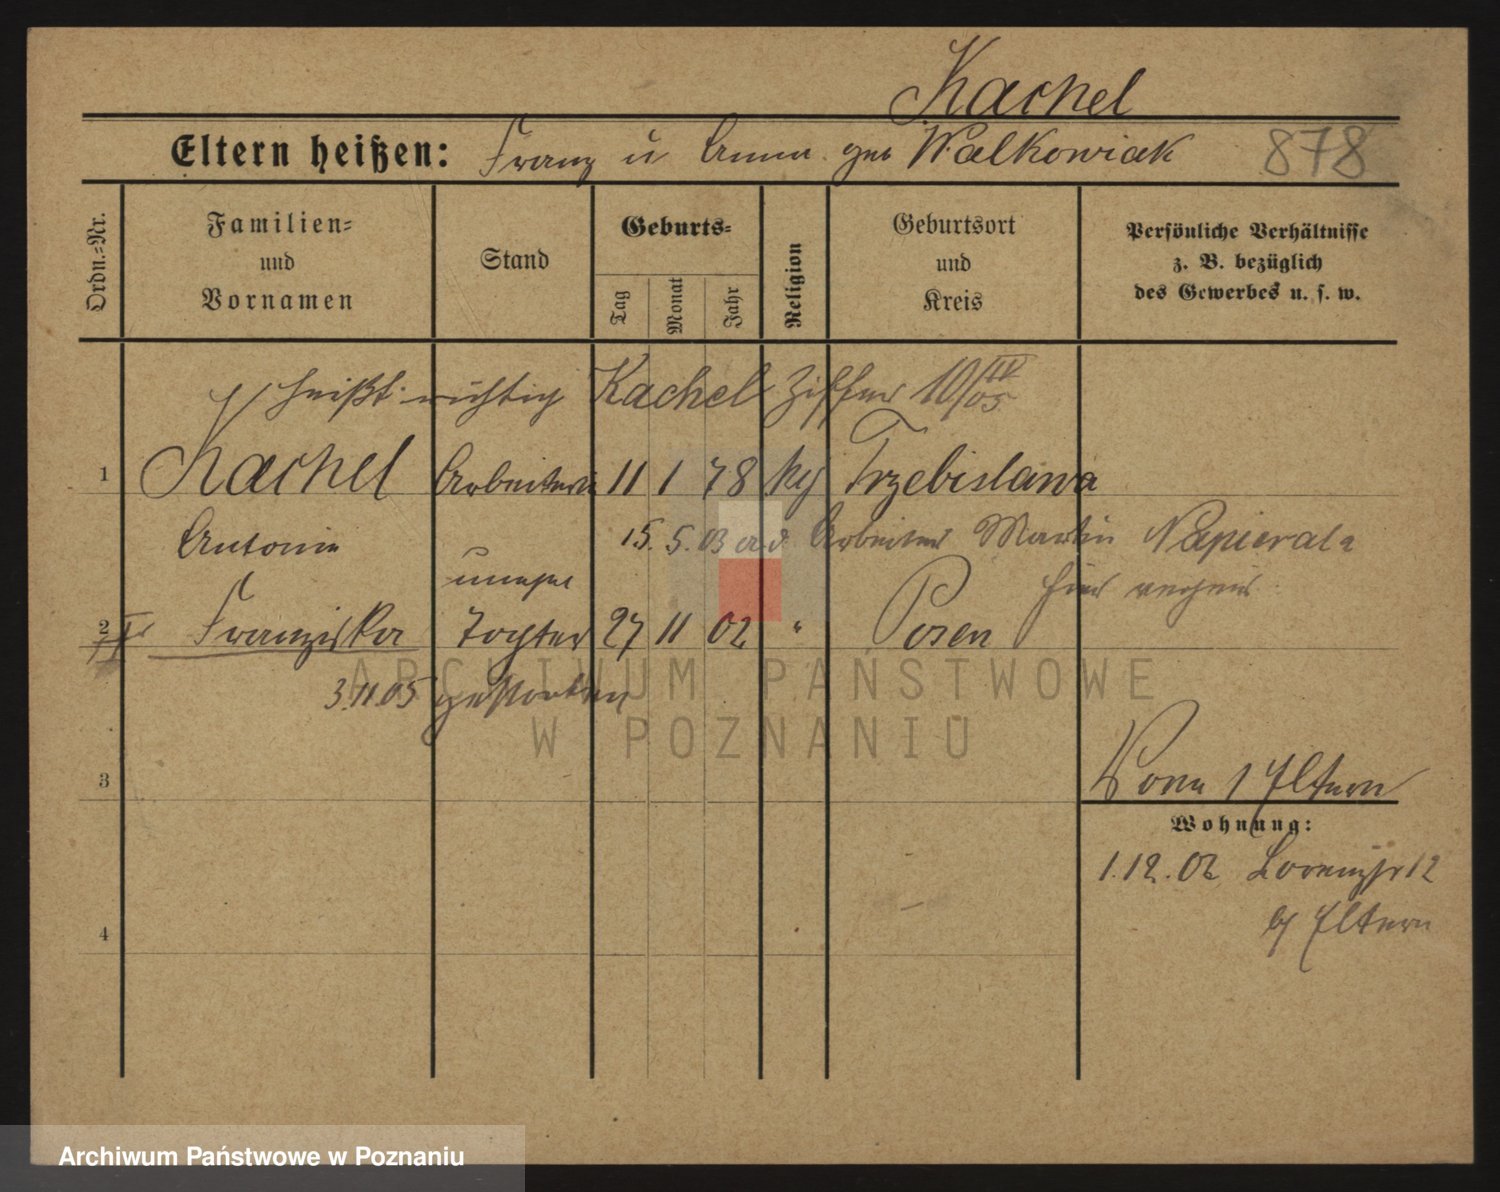 Kachel
Eltern heißen: Franz u Anna geb Walkowiak 878
Ordn.=Nr.
Familien= und Vornamen
Stand
Geburts=
Tag
Monat
Jahr
Religion
Geburtsort und Kreis
Persönliche Verhältnisse z. B. bezüglich des Gewerbes u. s. w.
heißt richtig Kachel Ziffer 10/IV 05
1 Kachel Arbeiterin 11 1 78 kg Trzebislawa
Antonie 15. 5. 03 Arbeiter Martin Napierala
unehel hier
2 Franziska Tochter 27 11 02 " Posen
3.11.05 gestorben
3
Eltern
Wohnung:
1.12.02 Lorenzstr 12
b/ Eltern
4
ARCHIWUM PAŃSTWOWE
W POZNANIU
Archiwum Państwowe w Poznaniu